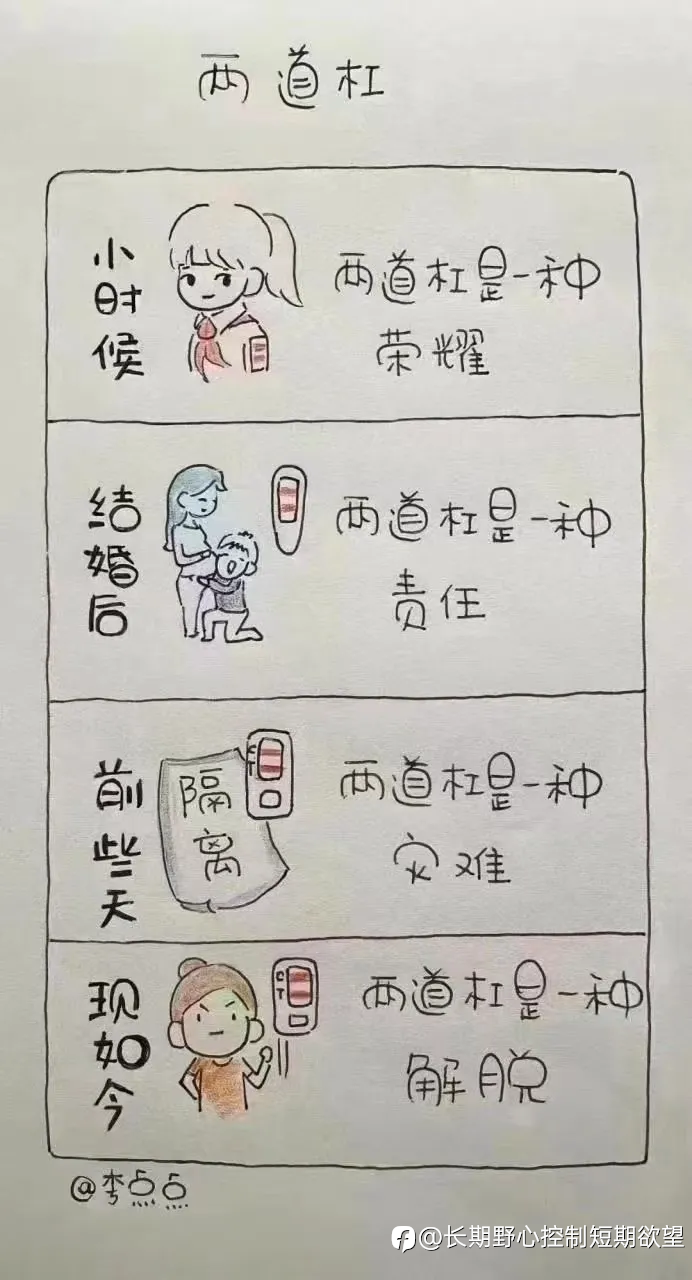 两道杠
小时候
两道杠是一种
荣耀
结婚后
两道杠是一种
责任
前些天
隔离
CT
两道杠是一种
灾难
现如今
CT
两道杠是一种
解脱
@李点点
@长期野心控制短期欲望